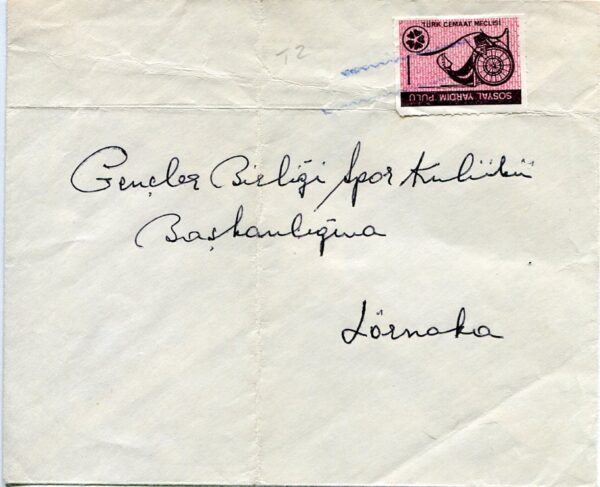 TÜRK CEMAAT MECLİSİ
1
SOSYAL YARDIM PULU
T2
Gençler Birliği Spor Kulübü
Başkanlığına
Lörnaka